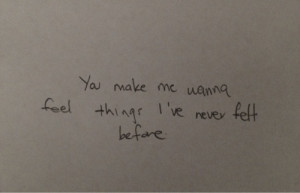 You make me wanna
feel things I've never felt
before